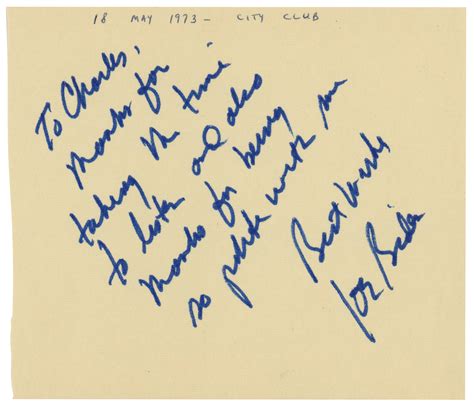 18 MAY 1973 - CITY CLUB
To Charles,
Thanks for
taking the time
to listen and also
thanks for being
so polite with me
Best Wishes
Joe Biden